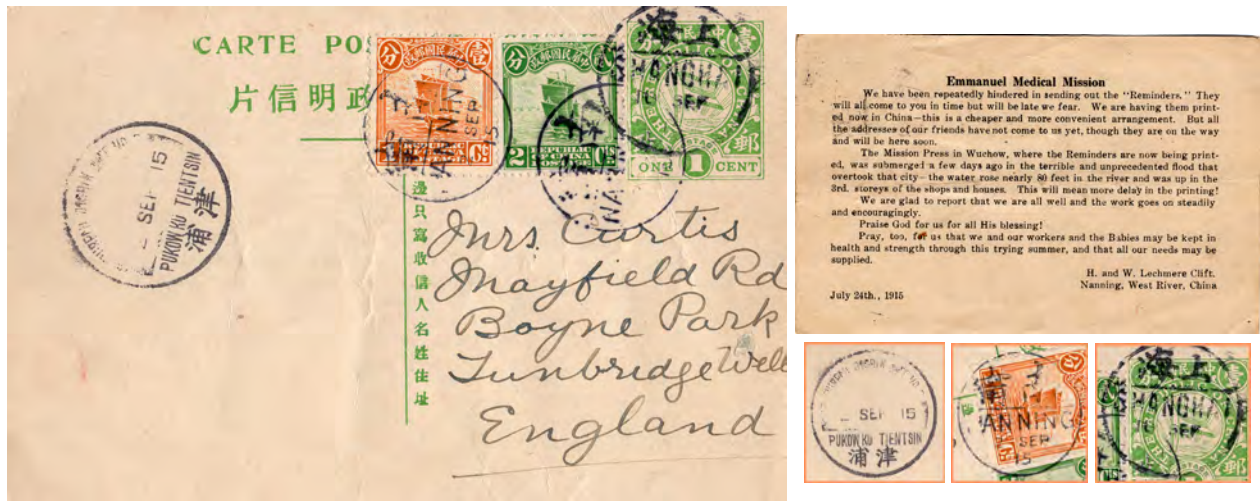 CARTE POS
片信明政
ONE 1 CENT
SHANGHAI
SEP
NANNING
SEP
15
SEP 15
PUKOW KU TIENTSIN
浦津
邊只寫收信人名姓住址
Mrs. Curtis
Mayfield Rd
Boyne Park
Tunbridge Well
England
Emmanuel Medical Mission
We have been repeatedly hindered in sending out the "Reminders." They
will all come to you in time but will be late we fear. We are having them print-
ed now in China—this is a cheaper and more convenient arrangement. But all
the addresses of our friends have not come to us yet, though they are on the way
and will be here soon.
The Mission Press in Wuchow, where the Reminders are now being print-
ed, was submerged a few days ago in the terrible and unprecedented flood that
overtook that city—the water rose nearly 80 feet in the river and was up in the
3rd. storeys of the shops and houses. This will mean more delay in the printing!
We are glad to report that we are all well and the work goes on steadily
and encouragingly.
Praise God for us for all His blessing!
Pray, too, for us that we and our workers and the Babies may be kept in
health and strength through this trying summer, and that all our needs may be
supplied.
H. and W. Lechmere Clift.
Nanning, West River, China
July 24th., 1915
SEP 15
PUKOW KU TIENTSIN
浦津
ANNING
SEP
15
SHANGHAI
SEP